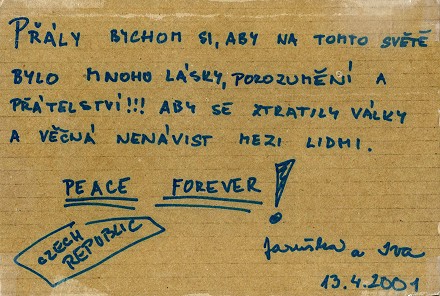 PŘÁLY BYCHOM SI, ABY NA TOMTO SVĚTĚ
BYLO MNOHO LÁSKY, POROZUMĚNÍ A
PŘÁTELSTVÍ!!! ABY SE ZTRATILY VÁLKY
A VĚČNÁ NENÁVIST MEZI LIDMI.
PEACE FOREVER!
CZECH
REPUBLIC
Jaruška a Iva
13.4.2001